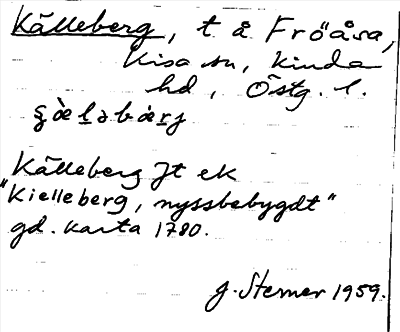 Källeberg, t å Fröåsa,
Kisa sn, Kinda
hd, Östg. l.
Källeberg Jt ek
"Kielleberg, nyssbebygdt"
gd. karta 1780.
G. Sterner 1959.